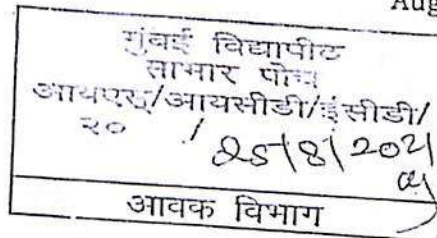 Aug
मुंबई विद्यापीठ
साभार पोच
आयएस/आयसीडी/ईसीडी/
२० /
25/8/202
आवक विभाग